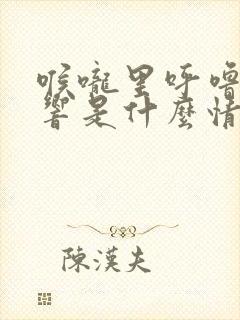 喉嚨里呼嚕
響是什麼情
陳漢夫